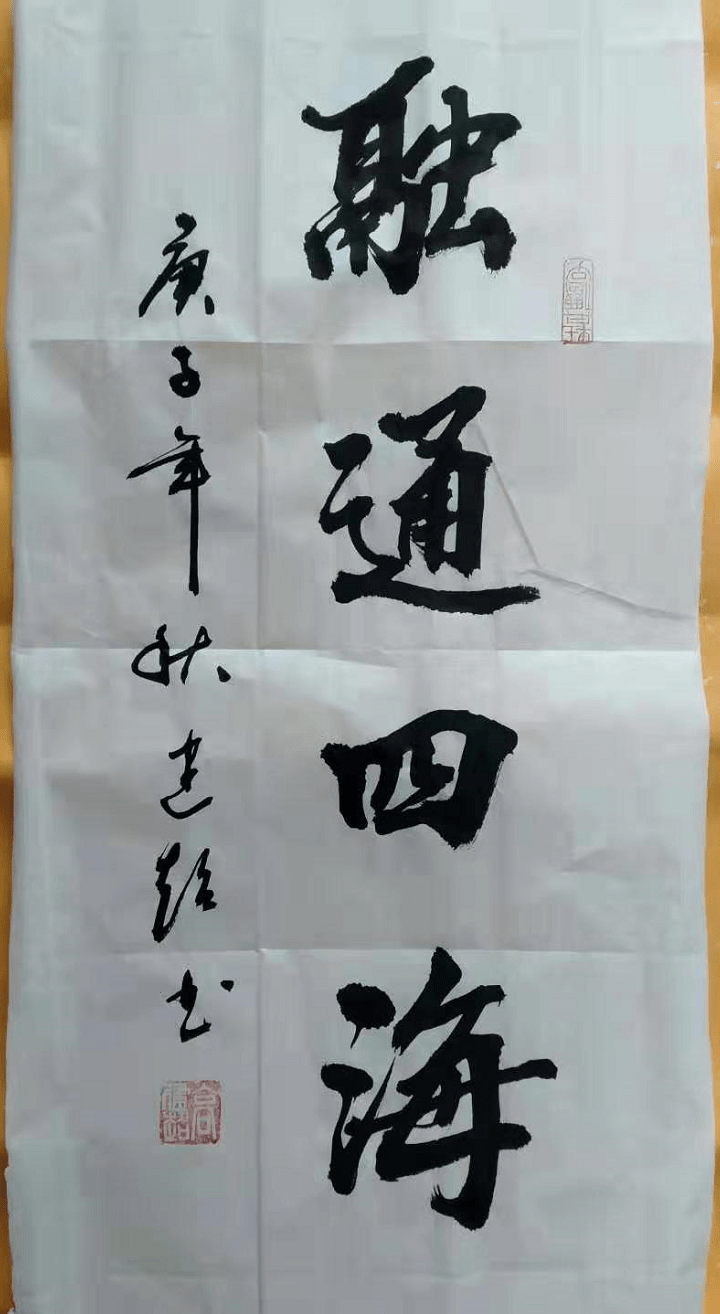 融通四海
庚子年秋建超书